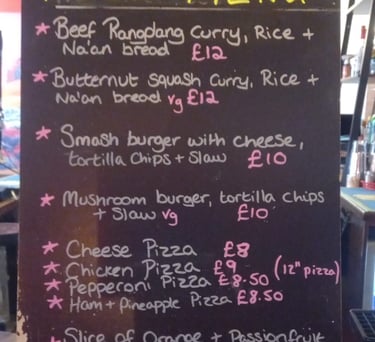 * Beef Rangdang Curry, Rice +
Na'an bread £12
* Butternut squash curry, Rice +
Na'an bread vg £12
* Smash burger with cheese,
tortilla chips + Slaw £10
* Mushroom burger, tortilla chips
+ Slaw vg £10
* Cheese Pizza £8
* Chicken Pizza £9 (12" pizza)
* Pepperoni Pizza £8.50
* Ham + Pineapple Pizza £8.50
* Slice of Orange + Passionfruit